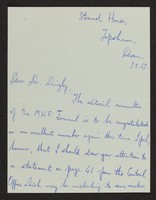 Strand House,
Topsham,
Devon
Dear Dr. Dingly,
The editorial committee
of the M&F. Journal is to be congratulated
on an excellent number again this time. I feel,
however, that I should draw your attention to
a statement on page 41 from the Central
Office which may be misleading to some readers.